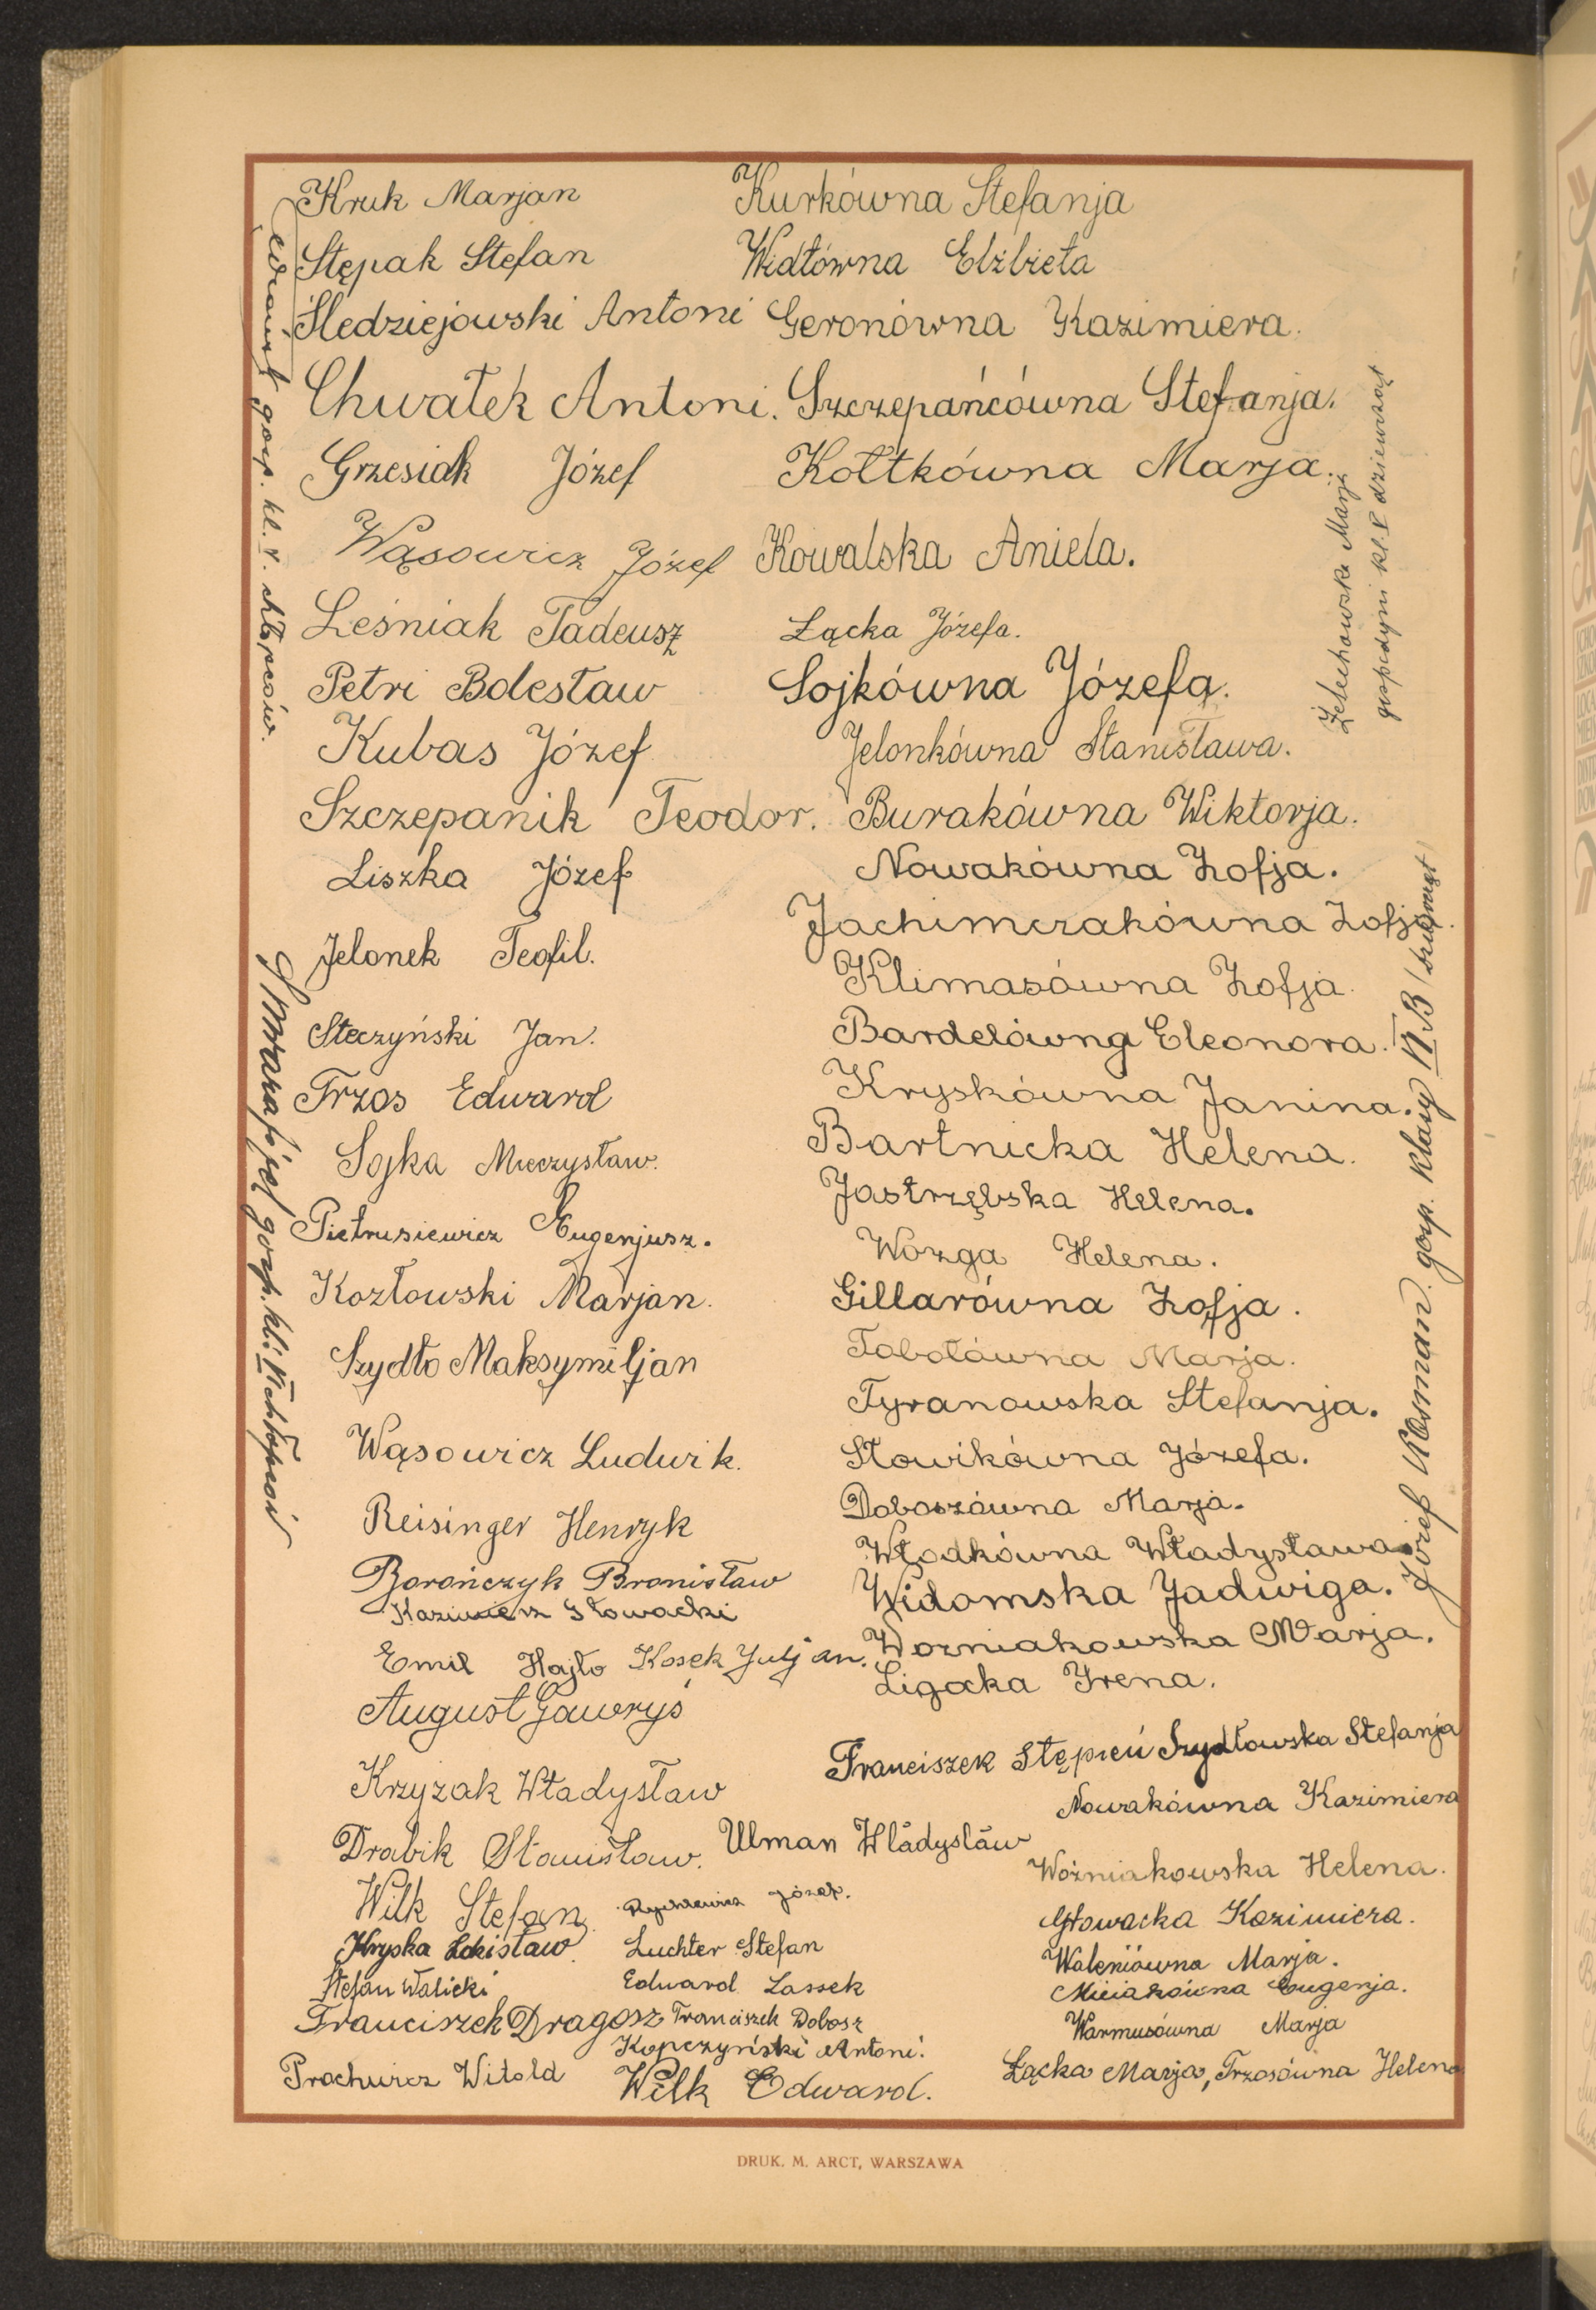 Kruk Marjan
Stępak Stefan
Śledziejowski Antoni
Chwałek Antoni.
Grzesiak Józef
Wąsowicz Józef
Leśniak Tadeusz
Petri Bolesław
Kubas Józef
Szczepanik Teodor.
Liszka Józef
Jelonek Teofil.
Steczyński Jan.
Trzos Edward
Sojka Mieczysław.
Pietrusiewicz Eugenjusz.
Kozłowski Marjan.
Szydło Maksymiljan
Wąsowicz Ludwik.
Reisinger Henryk
Borończyk Bronisław
Kazimierz Słowacki
Emil Hajło Kosek Juljan.
August Gawryś
Krzyzak Władysław
Drabik Stanisław.
Ulman Władysław
Wilk Stefan
Józef.
Kryska Zdzisław
Luchter Stefan
Stefan Walicki
Edward Lassek
Franciszek Dragosz
Franciszek Dobosz
Kopczyński Antoni.
Prochwicz Witold
Wilk Edward.
Kurkówna Stefanja
Widłówna Elżbieta
Geronówna Kazimiera.
Szczepańcówna Stefanja.
Kołtkówna Marja.
Kowalska Aniela.
Łącka Józefa.
Sojkówna Józefa.
Jelonkówna Stanisława.
Burakówna Wiktorja.
Nowakówna Zofja.
Jachimczakówna Zofja.
Klimasówna Zofja.
Bardelówna Eleonora.
Kryskówna Janina.
Bartnicka Helena.
Jastrzębska Helena.
Wozga Helena.
Gillarówna Zofja.
Tabołówna Marja.
Tyranowska Stefanja.
Słowikówna Józefa.
Doboszówna Marja.
Włodkówna Władysława
Widomska Jadwiga.
Worniakowska Marja.
Ligocka Irena.
Franciszek Stępień Szydłowska Stefanja
Nowakówna Kazimiera
Woźniakowska Helena.
Głowacka Kazimiera.
Waleniówna Marja.
Eugenja.
Warmusówna Marja
Łącka Marja, Trzosówna Helena
gosp. kl. V. chłopców.
gosp. kl. VI chłopców
Żelechowska Marja
gospodyni kl. V dziewcząt
Józef gosp. klasy VI B (dziewcząt)
DRUK. M. ARCT, WARSZAWA